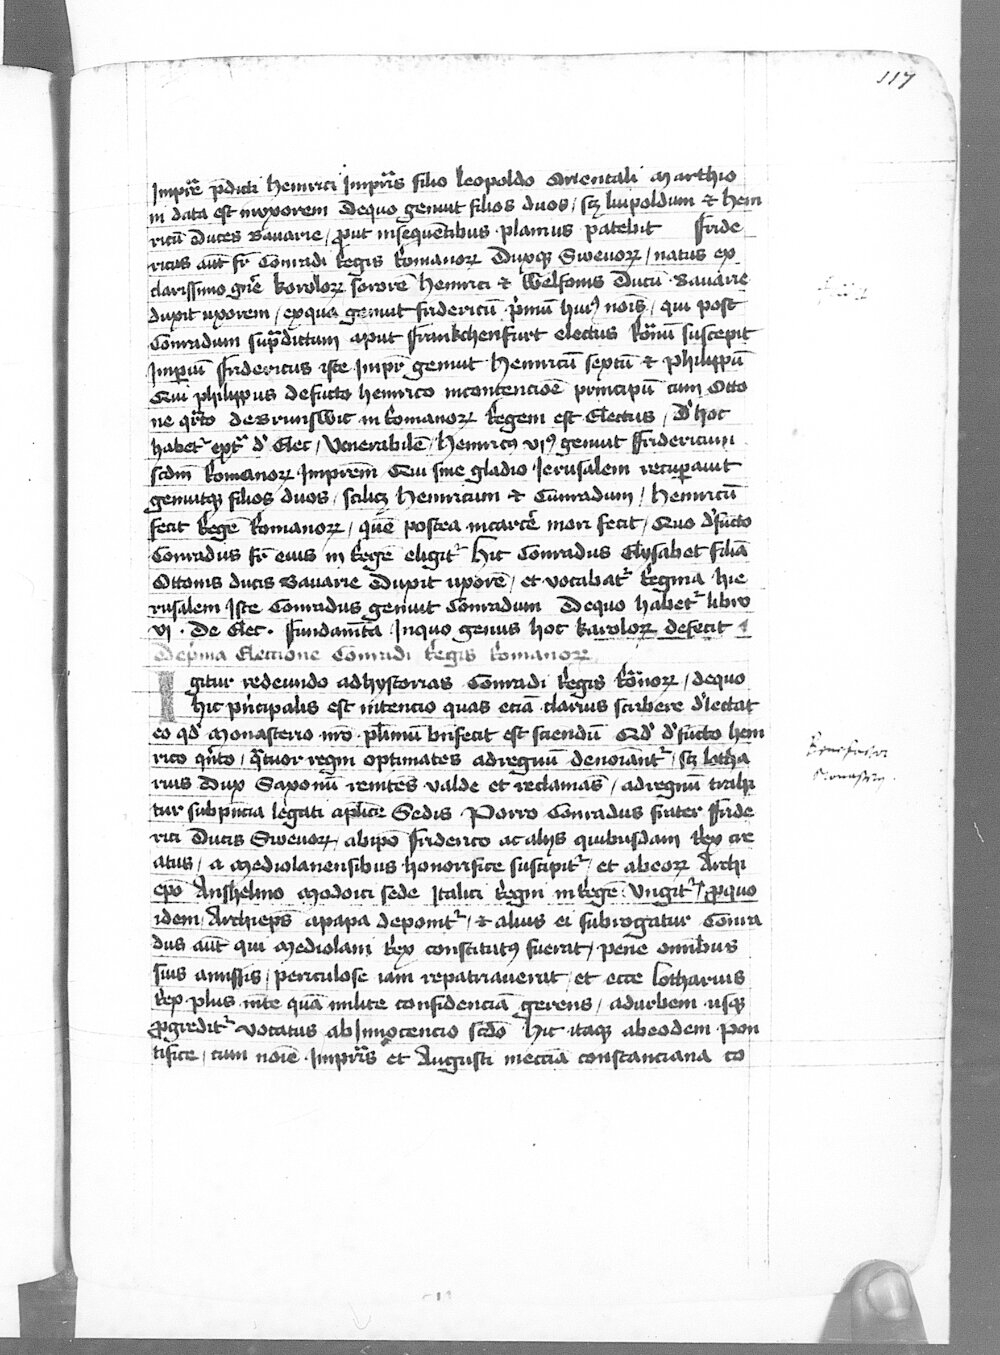 117
Impr̄e p̄dicti heinrici Imprīs filio leopoldo Orientali Marchio
ni data est inuxorem Dequo genuit filios duos / scȝ liupoldum et hein
ricū Duces Bavarie / prout insequentibus planius patebit Fride
ricus aūt fr̄ Conradi Regis Romanorꝝ Duxqꝫ Swevorꝝ / natus ex
clarissimo gn̄e korolorꝝ sororē heinrici et Welfonis Ducū Bavarie
duxit uxorem / exqua genuit fridericū p̄mū huiꝰ nois̄ / qui post
Conradum sup̄dictum aput Frankchenfurt electus Ro̅nū suscepit
Imperiū Fridericus iste Impr̄ genuit Heinricū sextū et philippū
Qui philippus defūcto heinrico incontencioē principū cum Otto
ne qr̄to deBrunswic in Romanorꝝ Regem est Electus / D' hoc
habet᷑ ext᷑ d' Elec / Venerabilē / Heinricꝰ viꝰ genuit Fridericum
scd̄m Romanorꝝ Imp̄rem Qui sine gladio Jerusalem recuꝑauit
genuitqꝫ filios duos / scilicȝ Heinricum et Cunradum / Heinricū
fecit Regē Romanorꝝ / quē postea incarcē mori fecit / Quo d'fūcto
Conradus fr̄ eius in Regē eligit᷑ Hic Conradus Elysabet filiā
Ottonis ducis Bavarie Duxit uxorē / et vocabat᷑ Regina hie
rusalem Iste Conradus genuit Conradum Dequo habet᷑ libro
vi . De Elec . Fundam̄ta / Inquo genus hoc karolorꝝ defecit
Dep̄ma Electione Conradi Regis Romanorꝝ
Igitur redeundo adhystorias Conradi Regis Ro̅norꝝ / dequo
hic pn̄cipalis est intencio quas eciā clarius scribere d'lectat
eo qd' Monasterio nr̄o pl̄imū bn̄fecit est sciendū Qd' d'fūcto hein
rico qn̄to / qᷓtuor regni optimates adregnū denoīant᷑ / scȝ lotha
rius Dux Saxonū renitēs valde et reclamās / adregnū trahi
tur subpn̄cia legati apl̄ice Sedis Porro Conradus frater Fride
rici Ducis Swevorꝝ / abipō Friderico ac alijs quibusdam Rex cre
atus / a Mediolanensibus honorifice suscipit᷑ / et abeorꝝ Archi
ep̄o Anshelmo Modoici sede Italici Regni in Regē Ungit᷑ / ꝓquo
idem Archiep̄s apapa deponit᷑ / et alius ei subrogatur Conra
dus aūt qui Mediolani Rex constitutꝰ fuerat / pene omībus
suis amissis / periculose iam repatriauerat / et ecce Lotharius
Rex plus m̄te quā milite confidenciā gerens / adurbem usqꝫ
ꝓgredit᷑ vocatus abInnocencio scd̄o Hic itaqꝫ abeodem pon
tifice / cum noīe Imprīs et Augusti mecciā constanciana co